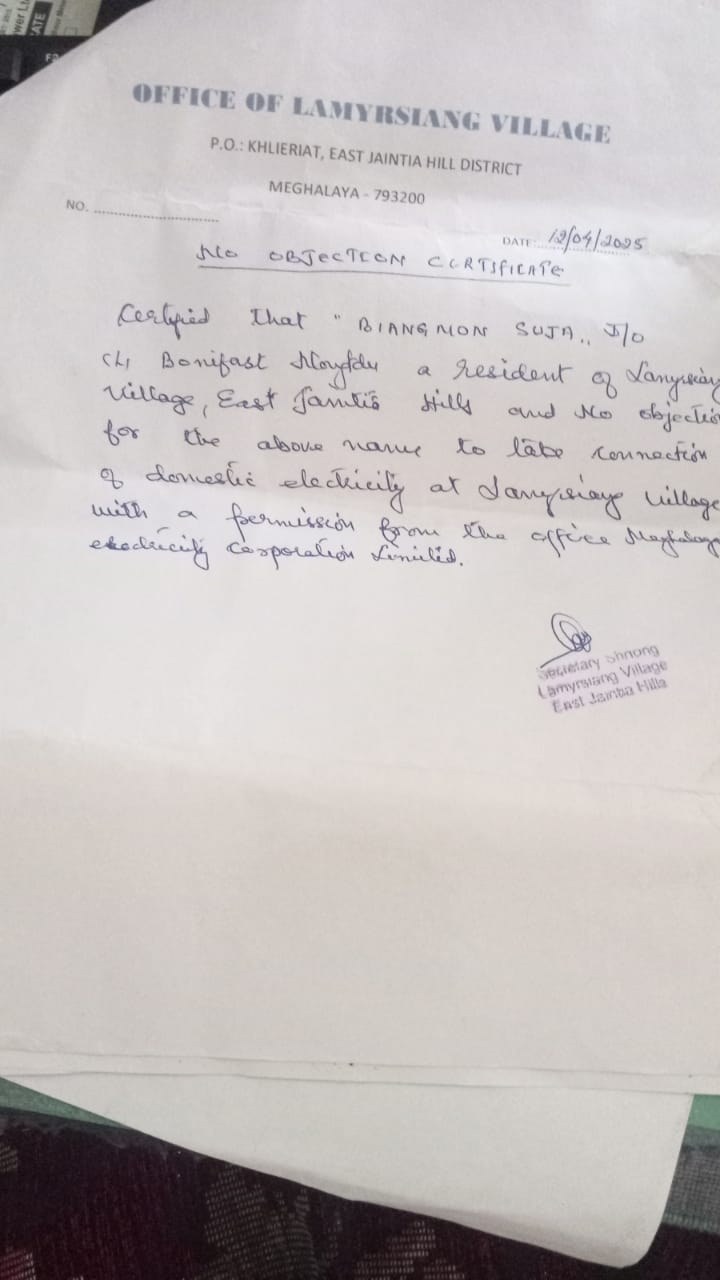 OFFICE OF LAMYRSIANG VILLAGE
P.O.: KHLIERIAT, EAST JAINTIA HILL DISTRICT
MEGHALAYA - 793200
NO. ..............................
DATE: 12/04/2025
NO OBJECTION CERTIFICATE
Certified that "BIANGMON SUJA,, S/O
a resident of Lamyrsiang
Village, East Jaintia Hills and No objectio
for the above name to take connection
of domestic electricity at Lamyrsiang village
with a permission from the office Meghalaya
electricity Corporation Limited.
Secretary Shnong
Lamyrsiang Village
East Jaintia Hills